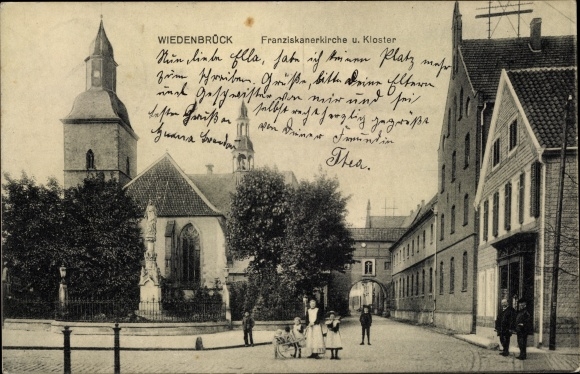 WIEDENBRÜCK Franziskanerkirche u. Kloster
Nun, liebe Ella, habe ich keinen Platz mehr
zum Schreiben. Grüße, bitte Deine Eltern
und Geschwister von mir und sei
selbst recht herzlich gegrüßt
von Deiner Freundin
Thea.